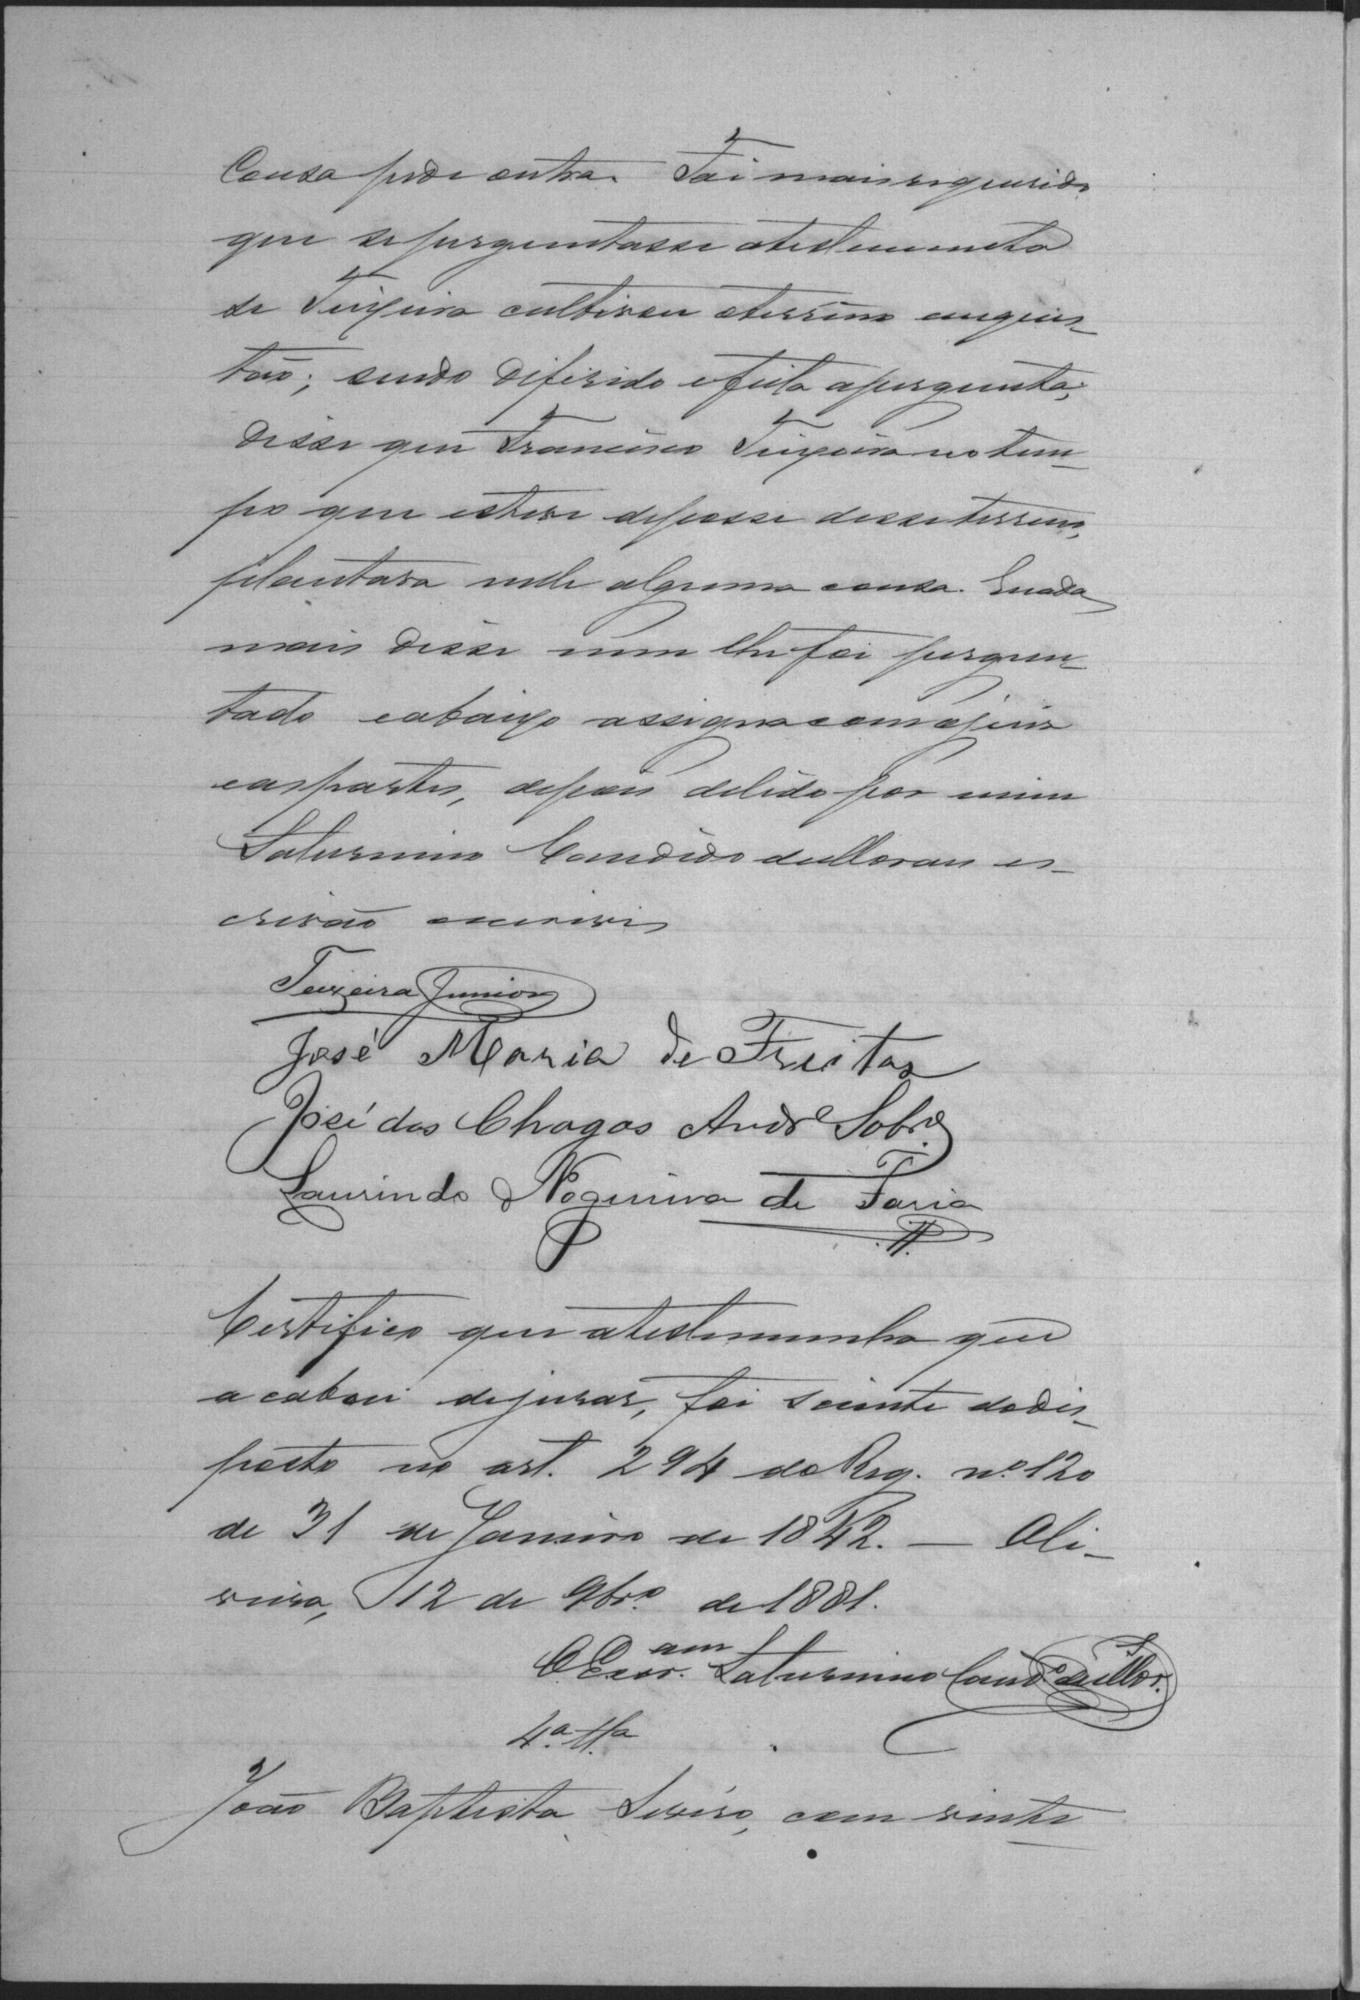 Couza pede outra. Foi mais requerido
que se perguntasse a testemunha
se Teixeira cultivou o terreno em ques-
tão; sendo deferido e feita a pergunta,
disse que Francisco Teixeira no tem-
po que esteve de posse desse terreno,
plantava nelle alguma couza. E nada
mais disse nem lhe foi pergun-
tado e abaixo assigna com o juiz
e as partes, depois de lido por mim
Saturnino Candido de Moraes es-
crivão escrevi
Teixeira Junior
José Maria de Freitas
José das Chagas Andre Sobr.º
Laurindo Nogueira de Faria
Certifico que a testemunha que
acabou de jurar, foi sciente do dis-
posto no art. 294 do Reg. nº 120
de 31 de Janeiro de 1842. — Oli-
veira, 12 de 9br.º de 1881.
O Escr.am Saturnino Cand.º de Mor.
4.ª Tt.ª
João Baptista Severo, com vinte